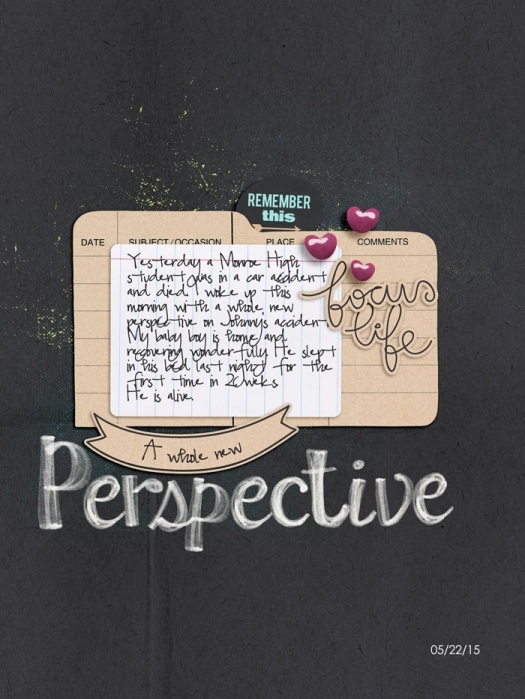 REMEMBER
this
DATE SUBJECT/OCCASION PLACE COMMENTS
Yesterday a Monroe High
student was in a car accident
and died. I woke up this
morning with a whole new
perspective on Johnny's accident
My baby boy is home and
recovering wonderfully He slept
in his bed last night for the
first time in 2 weeks
He is alive.
focus
life
A whole new
Perspective
05/22/15